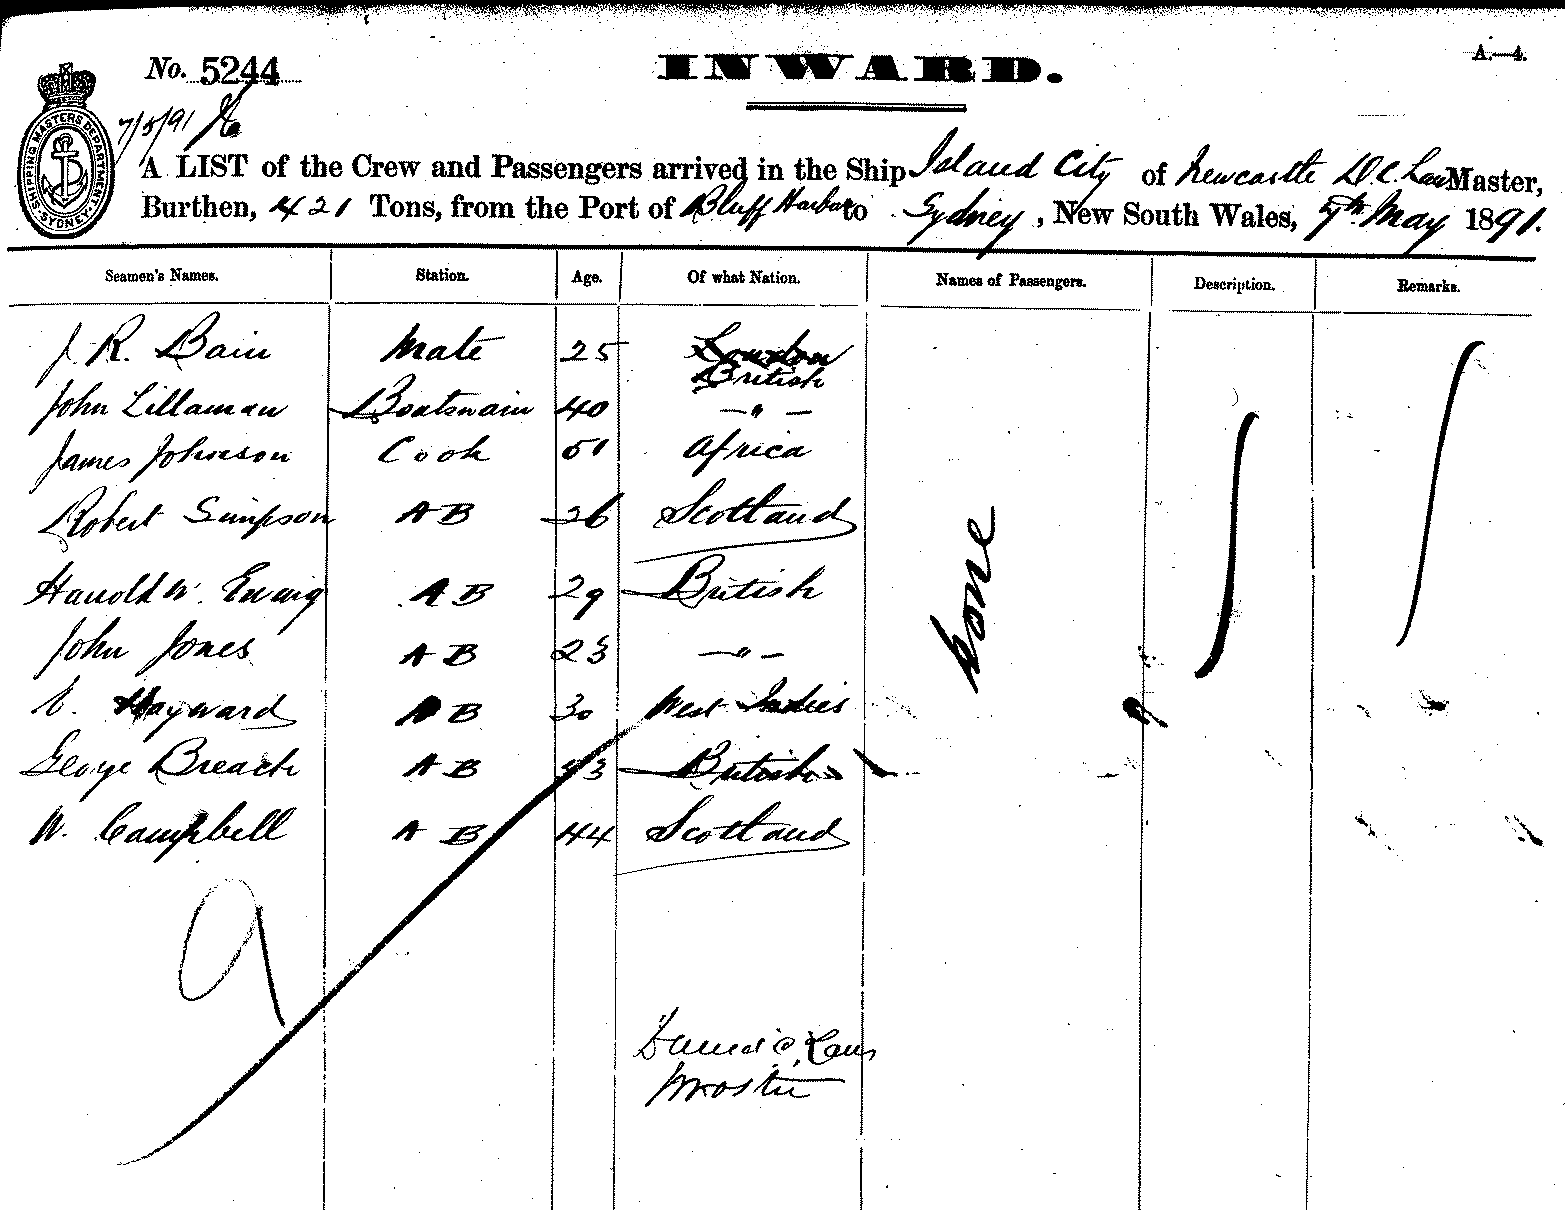 No. 5244
INWARD.
A.—4.
7/5/91
SHIPPING MASTERS DEPARTMENT SYDNEY
A LIST of the Crew and Passengers arrived in the Ship Island City of Newcastle D. C. Law Master,
Burthen, 421 Tons, from the Port of Bluff Harbor to Sydney, New South Wales, 7th May 1891.
Seamen's Names. Station. Age. Of what Nation. Names of Passengers. Description. Remarks.
J. R. Bain Mate 25 London
British
John Lillaman Boatswain 40 —"—
James Johnson Cook 51 Africa
Robert Simpson AB 26 Scotland
Harold W. AB 29 British
John Jones AB 23 —"—
Hayward AB 30 West Indies
George Breach AB 43 British
W. Campbell AB 44 Scotland
None
9
Daniel C. Law
Master